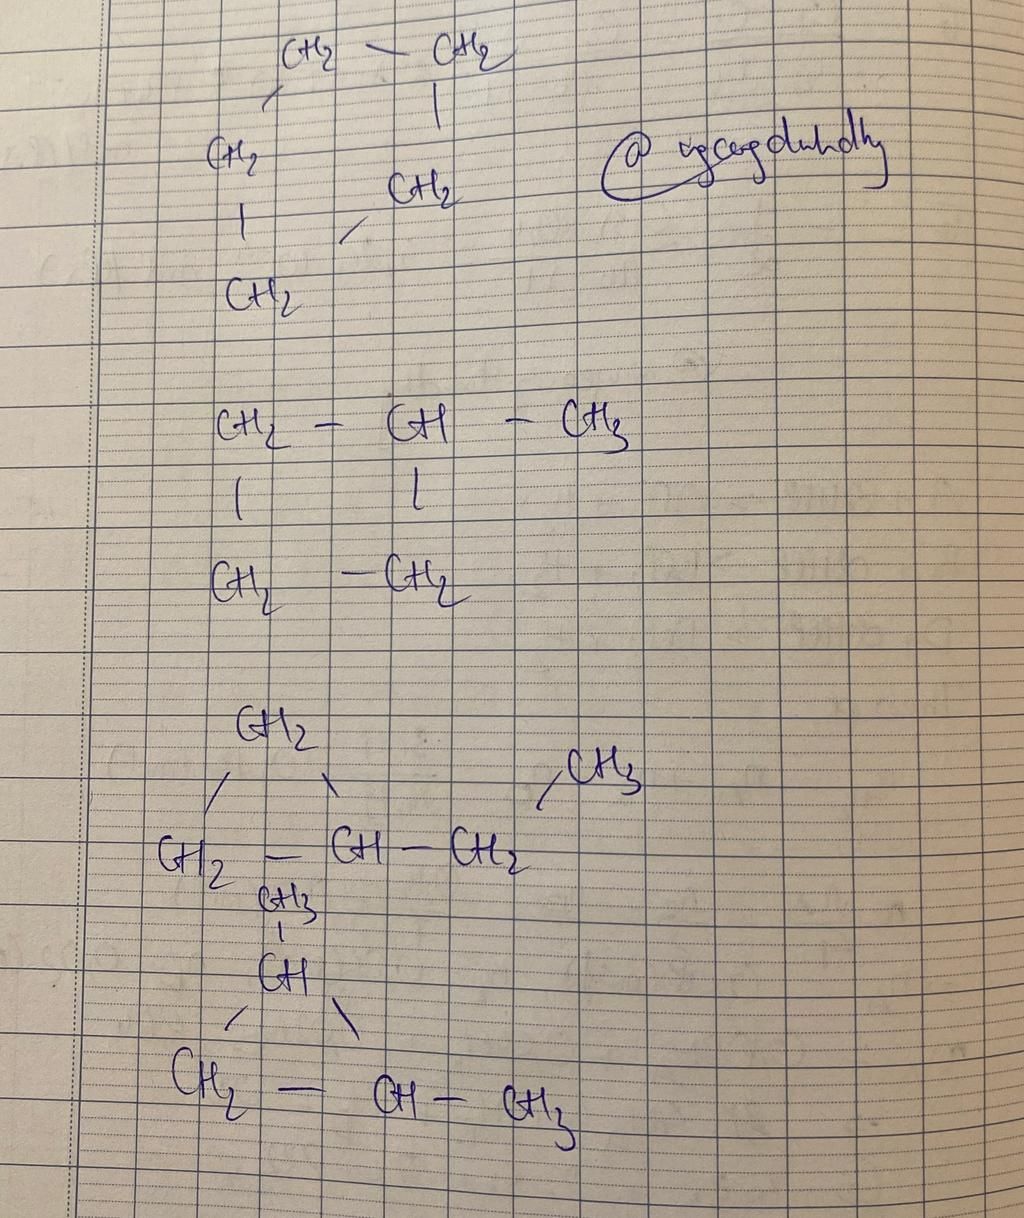 CH2 — CH2
CH2
CH2
CH2
CH2 — CH — CH3
CH2 — CH2
CH2
CH3
CH2 — CH — CH2
CH3
CH
CH2 — CH — CH3